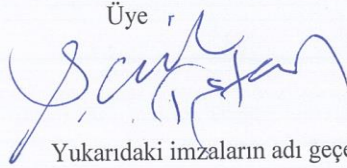 Üye
Yukarıdaki imzaların adı geçe